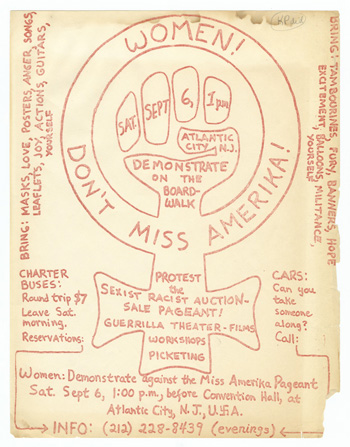 WOMEN!
DON'T MISS AMERIKA!
SAT. SEPT 6, 1pm
ATLANTIC
CITY N.J.
DEMONSTRATE
ON THE
BOARD-
WALK
BRING: MASKS, LOVE, POSTERS, ANGER, SONGS,
LEAFLETS, JOY, ACTIONS, GUITARS,
YOURSELF
BRING: TAMBOURINES, FURY, BANNERS, HOPE
EXCITEMENT, BALLOONS, MILITANCE,
YOURSELF
CHARTER
BUSES:
Round trip $7
Leave Sat.
morning.
Reservations:
PROTEST
the
SEXIST RACIST AUCTION-
SALE PAGEANT!
GUERRILLA THEATER-FILMS
WORKSHOPS
PICKETING
CARS:
Can you
take
someone
along?
Call:
Women: Demonstrate against the Miss Amerika Pageant
Sat. Sept 6, 1:00 p.m., before Convention Hall, at
Atlantic City, N.J., U.S.A.
INFO: (212) 228-8439 (evenings)